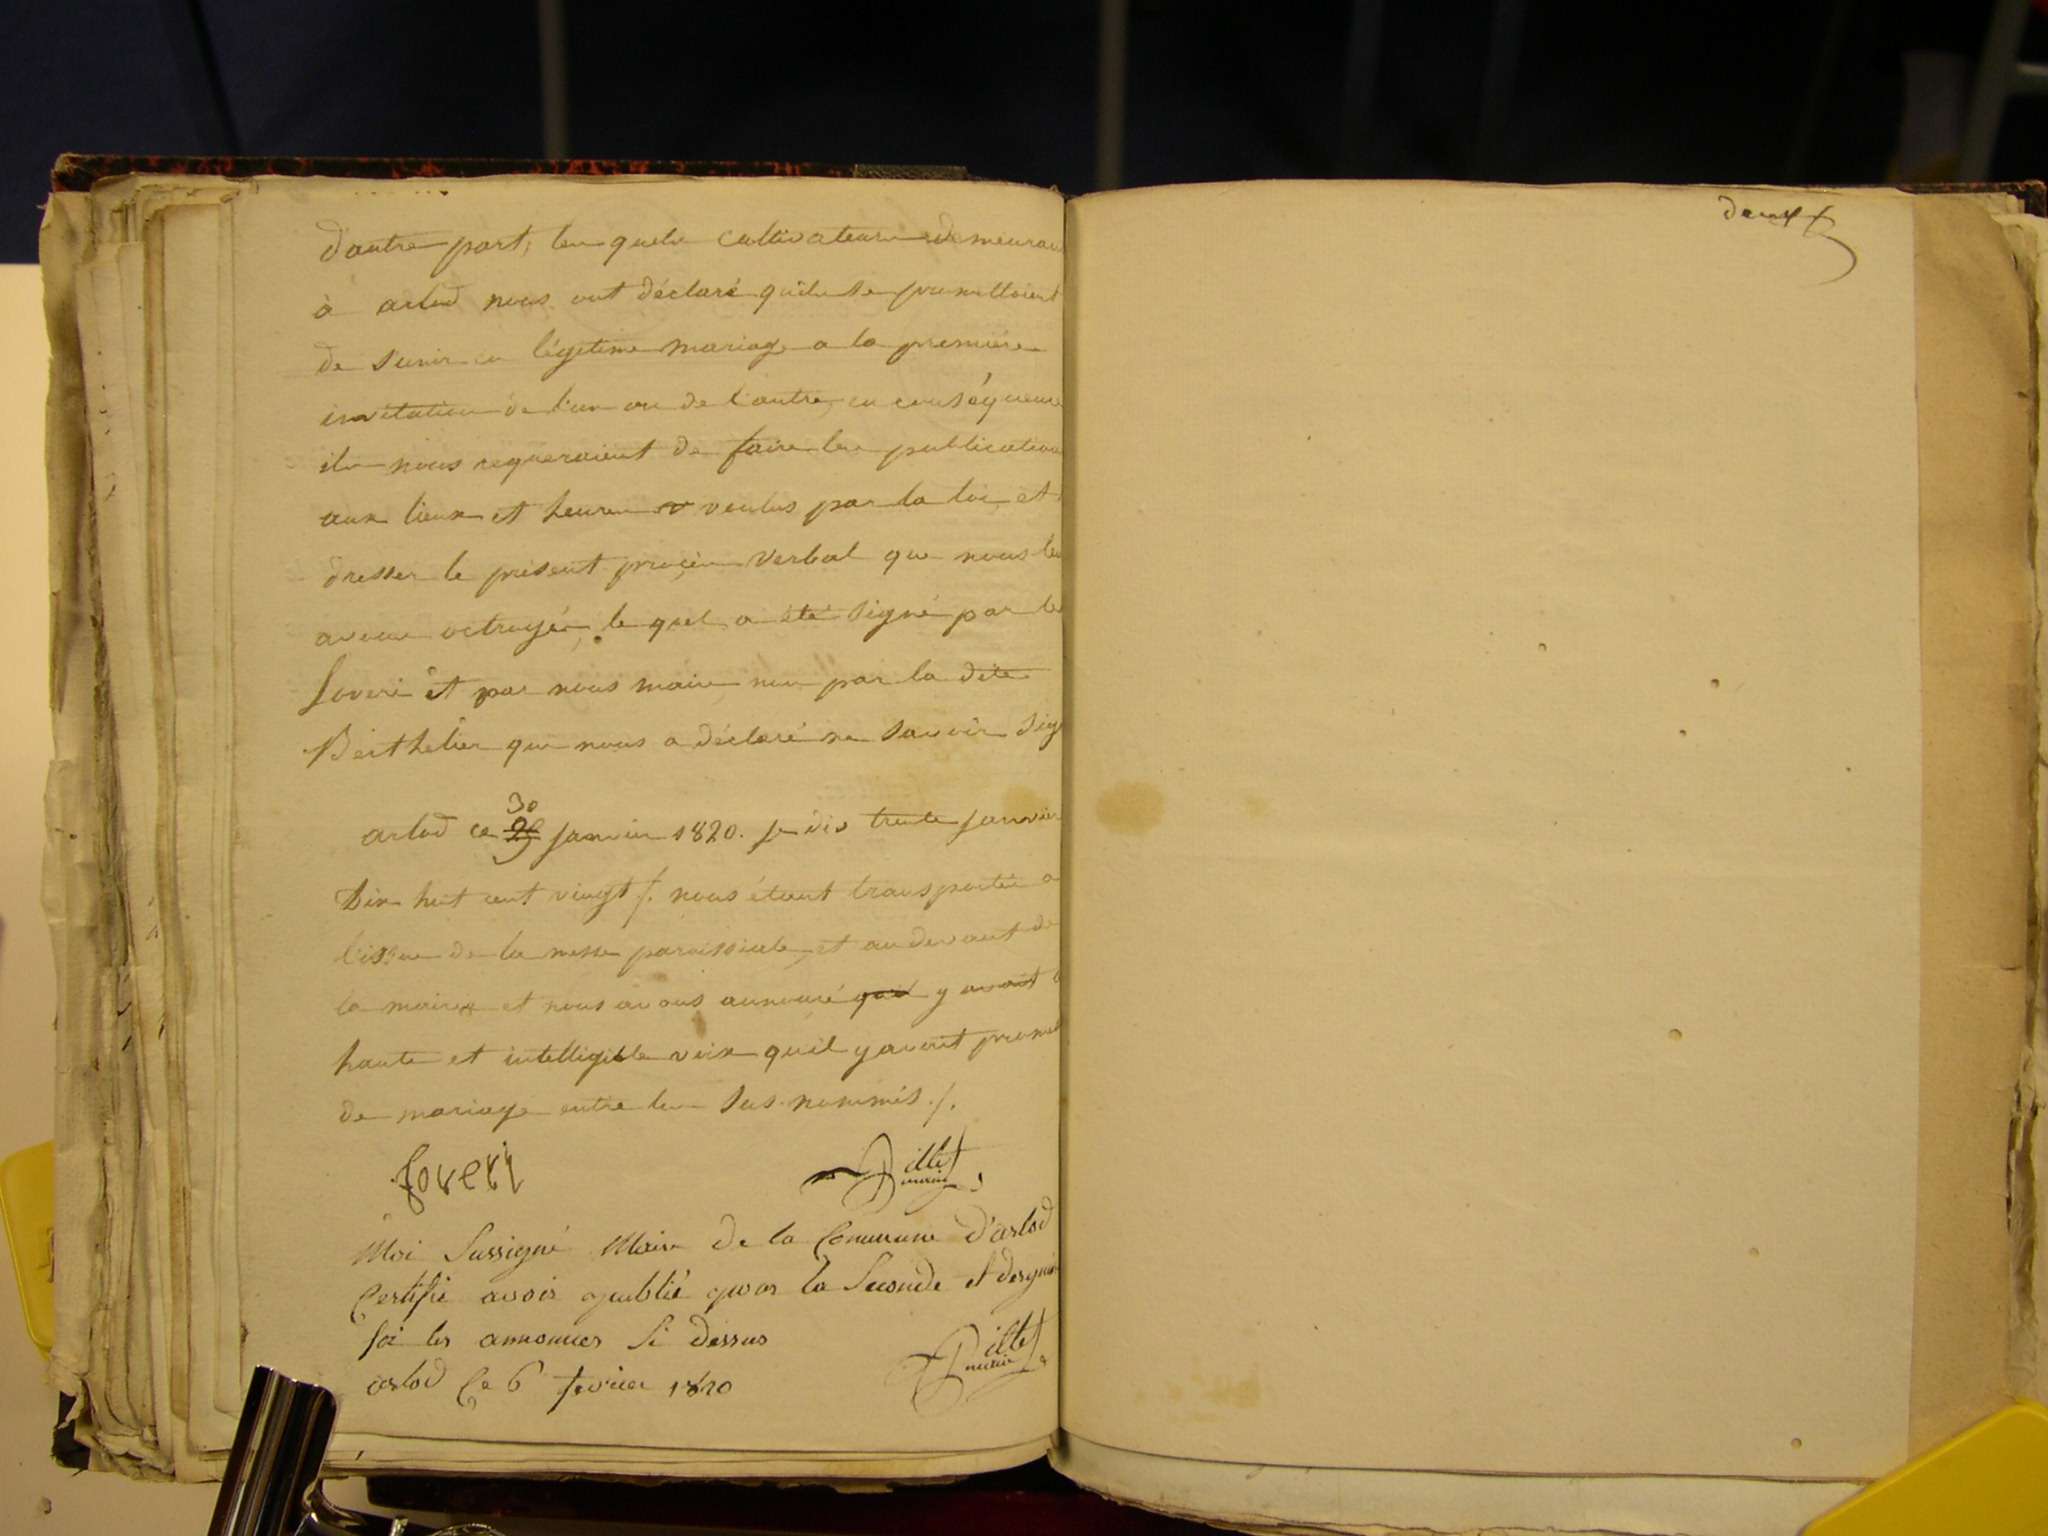 d'autre part, les quels cultivateurs demeuran
à arlod nous ont déclaré quils se promettoient
de sunir en légitime mariage a la première
invitation de l'un ou de l'autre, en conséquence
ils nous requeraient de faire les publications
aux lieux et heures voulus par la loi, et
dresser le présent procès verbal que nous leur
avons octroyés, le quel a été signé par le
Joveri et par nous maire, non par la dite
Berthelier que nous a déclaré ne savoir sig
30
arlod ce 29 janvier 1820. je dis trente janvier
Dix huit cent vingt /. nous étant transportés a
l'issue de la messe paroissiale, et au devant de
la mairie et nous avons annoncé quil y avoit a
haute et intelligible voix quil y avoit promes
de mariage entre les sus nommés /.
Joveri
Pillet
maire
Moi Sussigné Maire de la Commune d'arlod
Certifie avoir publié pour la Seconde et derniere
foi les annonces Si dessus
arlod Ce 6 fevrier 1820
Pillet
maire
deux